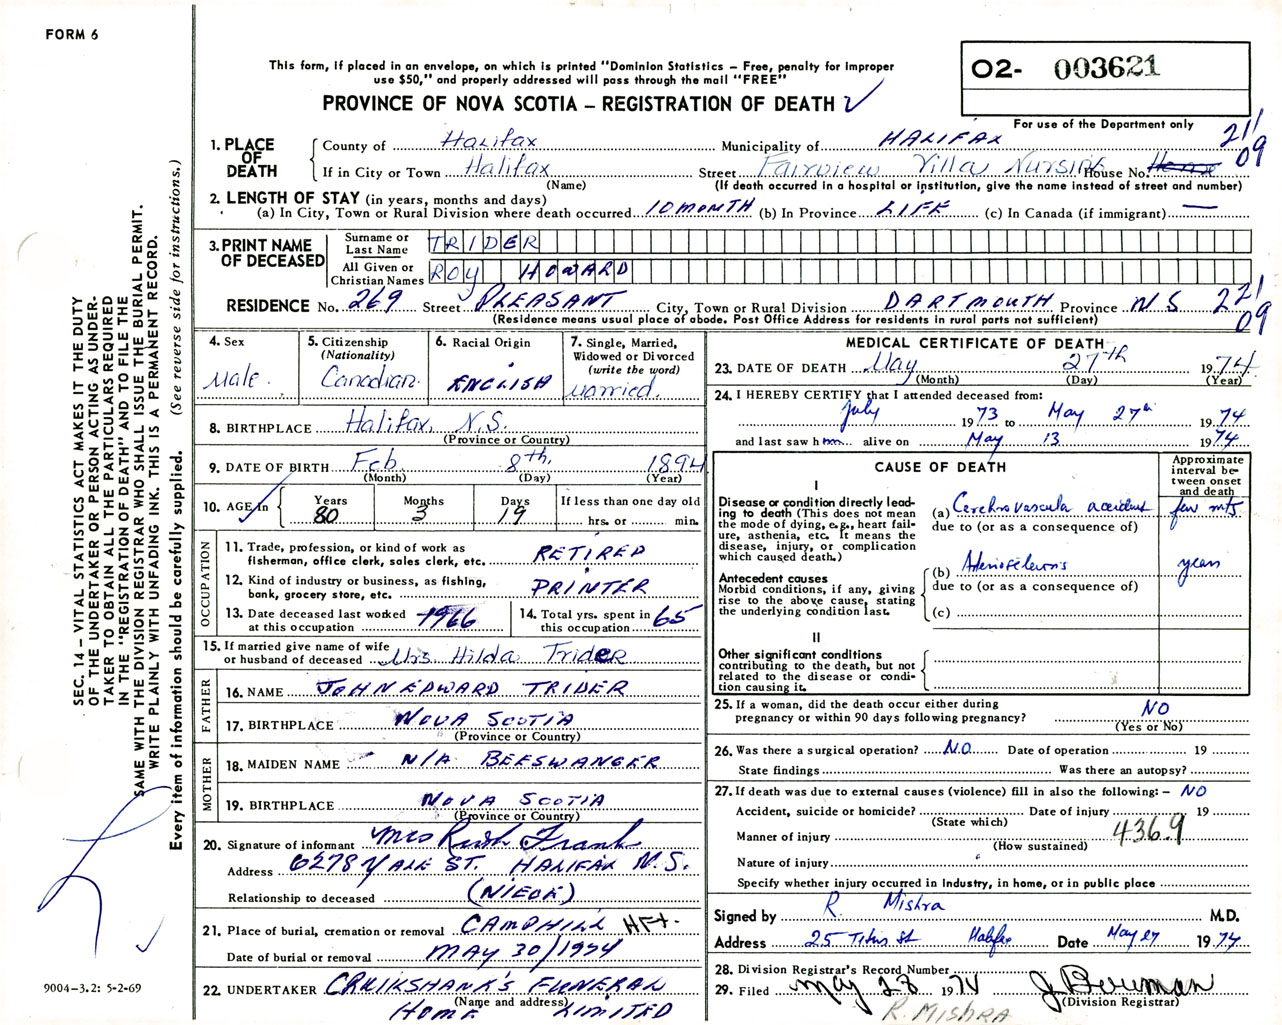 FORM 6
This form, if placed in an envelope, on which is printed "Dominion Statistics – Free, penalty for improper
use $50," and properly addressed will pass through the mail "FREE"
O2- 003621
PROVINCE OF NOVA SCOTIA – REGISTRATION OF DEATH
For use of the Department only
211
09
1. PLACE OF DEATH
County of Halifax Municipality of HALIFAX
If in City or Town Halifax Street Fairview Villa Nursing House No. Home
(Name) (If death occurred in a hospital or institution, give the name instead of street and number)
2. LENGTH OF STAY (in years, months and days)
(a) In City, Town or Rural Division where death occurred 10 MONTH (b) In Province LIFE (c) In Canada (if immigrant) —
3. PRINT NAME OF DECEASED
Surname or Last Name TRIDER
All Given or Christian Names ROY HOWARD
RESIDENCE No. 269 Street PLEASANT City, Town or Rural Division DARTMOUTH Province N.S. 221
09
(Residence means usual place of abode. Post Office Address for residents in rural parts not sufficient)
4. Sex
Male.
5. Citizenship
(Nationality)
Canadian.
6. Racial Origin
ENGLISH
7. Single, Married,
Widowed or Divorced
(write the word)
Married.
8. BIRTHPLACE Halifax, N.S.
(Province or Country)
9. DATE OF BIRTH Feb. 8th. 1894
(Month) (Day) (Year)
10. AGE in
Years Months Days If less than one day old
80 3 19 hrs. or min.
OCCUPATION
11. Trade, profession, or kind of work as
fisherman, office clerk, sales clerk, etc. RETIRED
12. Kind of industry or business, as fishing,
bank, grocery store, etc. PRINTER
13. Date deceased last worked
at this occupation 1966
14. Total yrs. spent in
this occupation 65
15. If married give name of wife
or husband of deceased Mrs. Hilda Trider
FATHER
16. NAME JOHN EDWARD TRIDER
17. BIRTHPLACE NOVA SCOTIA
(Province or Country)
MOTHER
18. MAIDEN NAME N/A BEESWANGER
19. BIRTHPLACE NOVA SCOTIA
(Province or Country)
20. Signature of informant Mrs Ruth Frank
Address 6278 YALE ST. HALIFAX N.S.
Relationship to deceased (NIECE)
21. Place of burial, cremation or removal CAMPHILL HFX.
Date of burial or removal MAY 30/1974
22. UNDERTAKER CRUIKSHANK'S FUNERAL
(Name and address)
HOME LIMITED
MEDICAL CERTIFICATE OF DEATH
23. DATE OF DEATH May 27th 1974
(Month) (Day) (Year)
24. I HEREBY CERTIFY that I attended deceased from:
July 1973 to May 27th 1974
and last saw him alive on May 13 1974
CAUSE OF DEATH
Approximate
interval be-
tween onset
and death
I
Disease or condition directly lead-
ing to death (This does not mean
the mode of dying, e.g., heart fail-
ure, asthenia, etc. It means the
disease, injury, or complication
which caused death.)
(a) Cerebrovascular accident few mts
due to (or as a consequence of)
Antecedent causes
Morbid conditions, if any, giving
rise to the above cause, stating
the underlying condition last.
(b) Arteriosclerosis years
due to (or as a consequence of)
(c)
II
Other significant conditions
contributing to the death, but not
related to the disease or condi-
tion causing it.
25. If a woman, did the death occur either during
pregnancy or within 90 days following pregnancy? NO
(Yes or No)
26. Was there a surgical operation? NO Date of operation 19
State findings Was there an autopsy?
27. If death was due to external causes (violence) fill in also the following: – NO
Accident, suicide or homicide? Date of injury 19
(State which)
Manner of injury 436.9
(How sustained)
Nature of injury
Specify whether injury occurred in Industry, in home, or in public place
Signed by R. Mishra M.D.
Address 25 Titus St Halifax Date May 27 1974
28. Division Registrar's Record Number
29. Filed May 28 1974 J. Bowman
(Division Registrar)
R. MISHRA
SEC. 14 – VITAL STATISTICS ACT MAKES IT THE DUTY
OF THE UNDERTAKER OR PERSON ACTING AS UNDER-
TAKER TO OBTAIN ALL THE PARTICULARS REQUIRED
IN THE "REGISTRATION OF DEATH" AND TO FILE THE
SAME WITH THE DIVISION REGISTRAR WHO SHALL ISSUE THE BURIAL PERMIT.
WRITE PLAINLY WITH UNFADING INK. THIS IS A PERMANENT RECORD.
Every item of information should be carefully supplied. (See reverse side for instructions.)
9004-3.2: 5-2-69